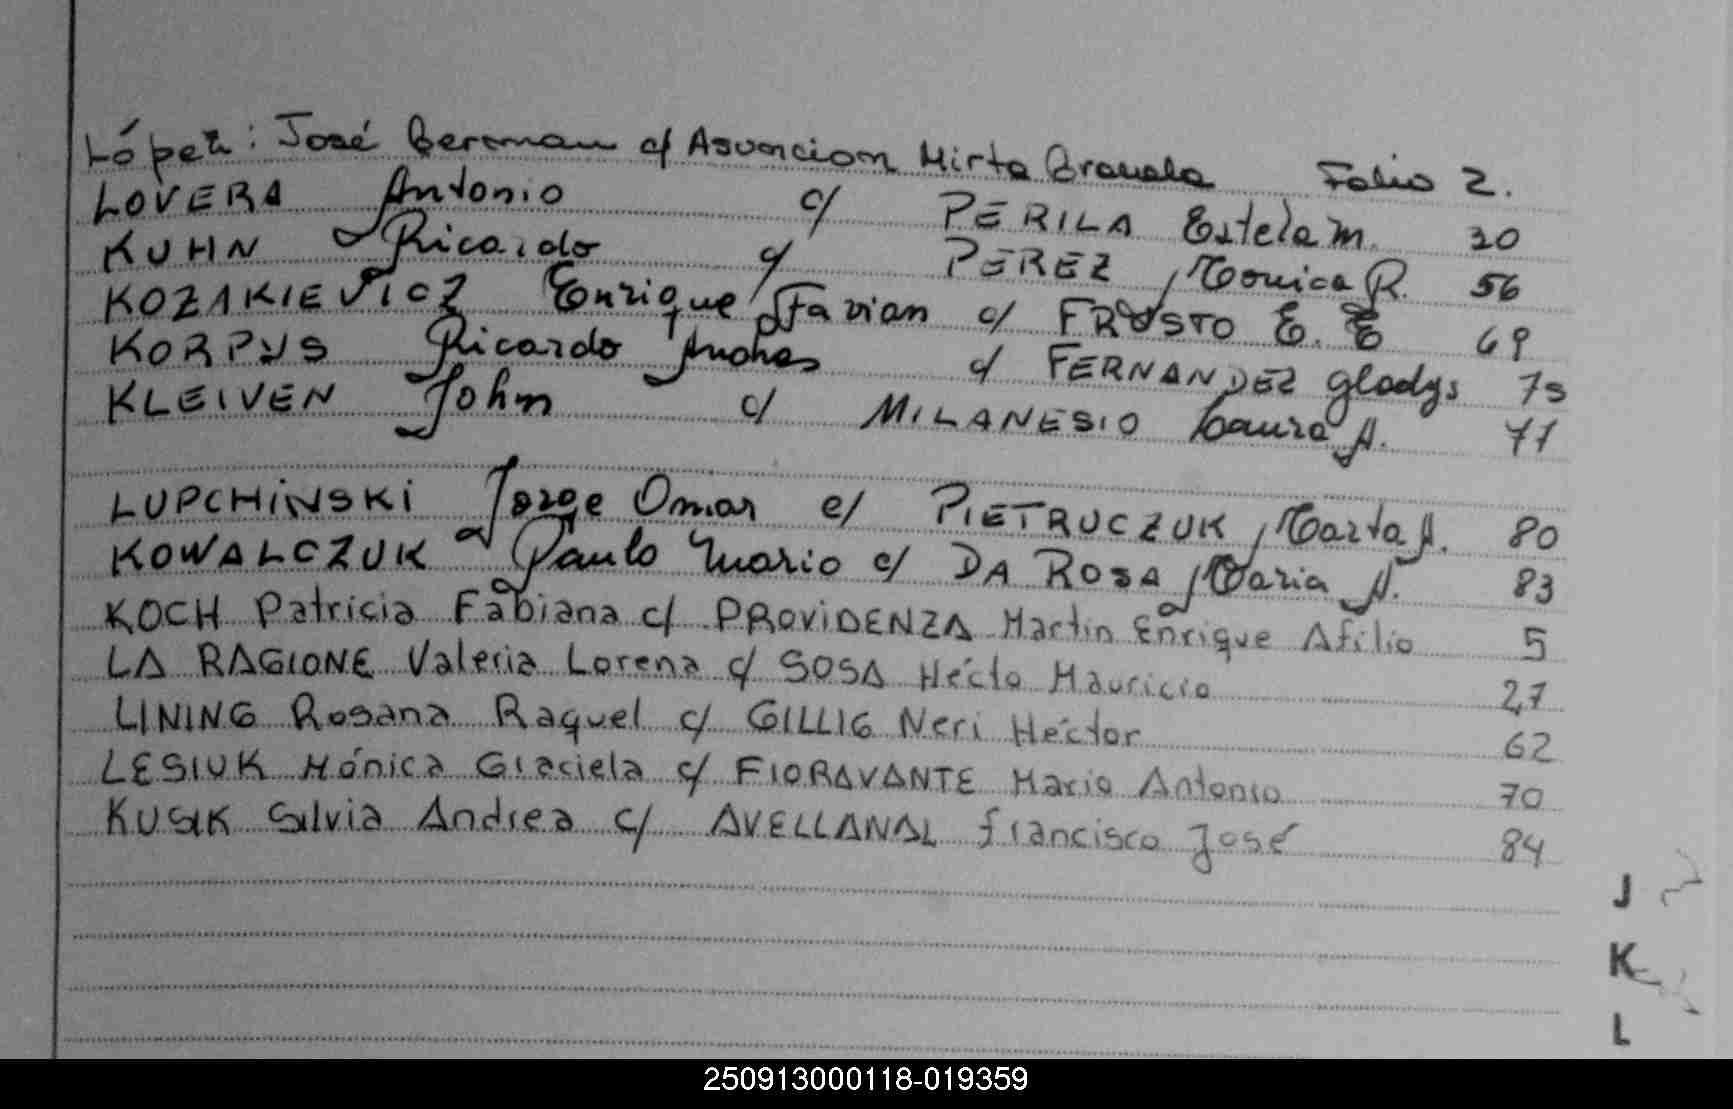 López: José German c/ Asuncion Mirta Bravala Folio 2.
LOVERA Antonio c/ PERILA Estela M. 30
KUHN Ricardo c/ PEREZ Monica R. 56
KOZAKIEVICZ Enrique Favian c/ FRUSTO E. E 69
KORPYS Ricardo Andres c/ FERNANDEZ Gladys 75
KLEIVEN John c/ MILANESIO Laura A. 77
LUPCHINSKI Jorge Omar c/ PIETRUCZUK Marta A. 80
KOWALCZUK Paulo Mario c/ DA ROSA Maria A. 83
KOCH Patricia Fabiana c/ PROVIDENZA Martin Enrique Atilio 5
LA RAGIONE Valeria Lorena c/ SOSA Hécto Mauricio 27
LINING Rosana Raquel c/ GILLIG Neri Héctor 62
LESIUK Mónica Graciela c/ FIORAVANTE Mario Antonio 70
KUSIK Silvia Andrea c/ AVELLANAL Francisco José 84
J
K
L
250913000118-019359